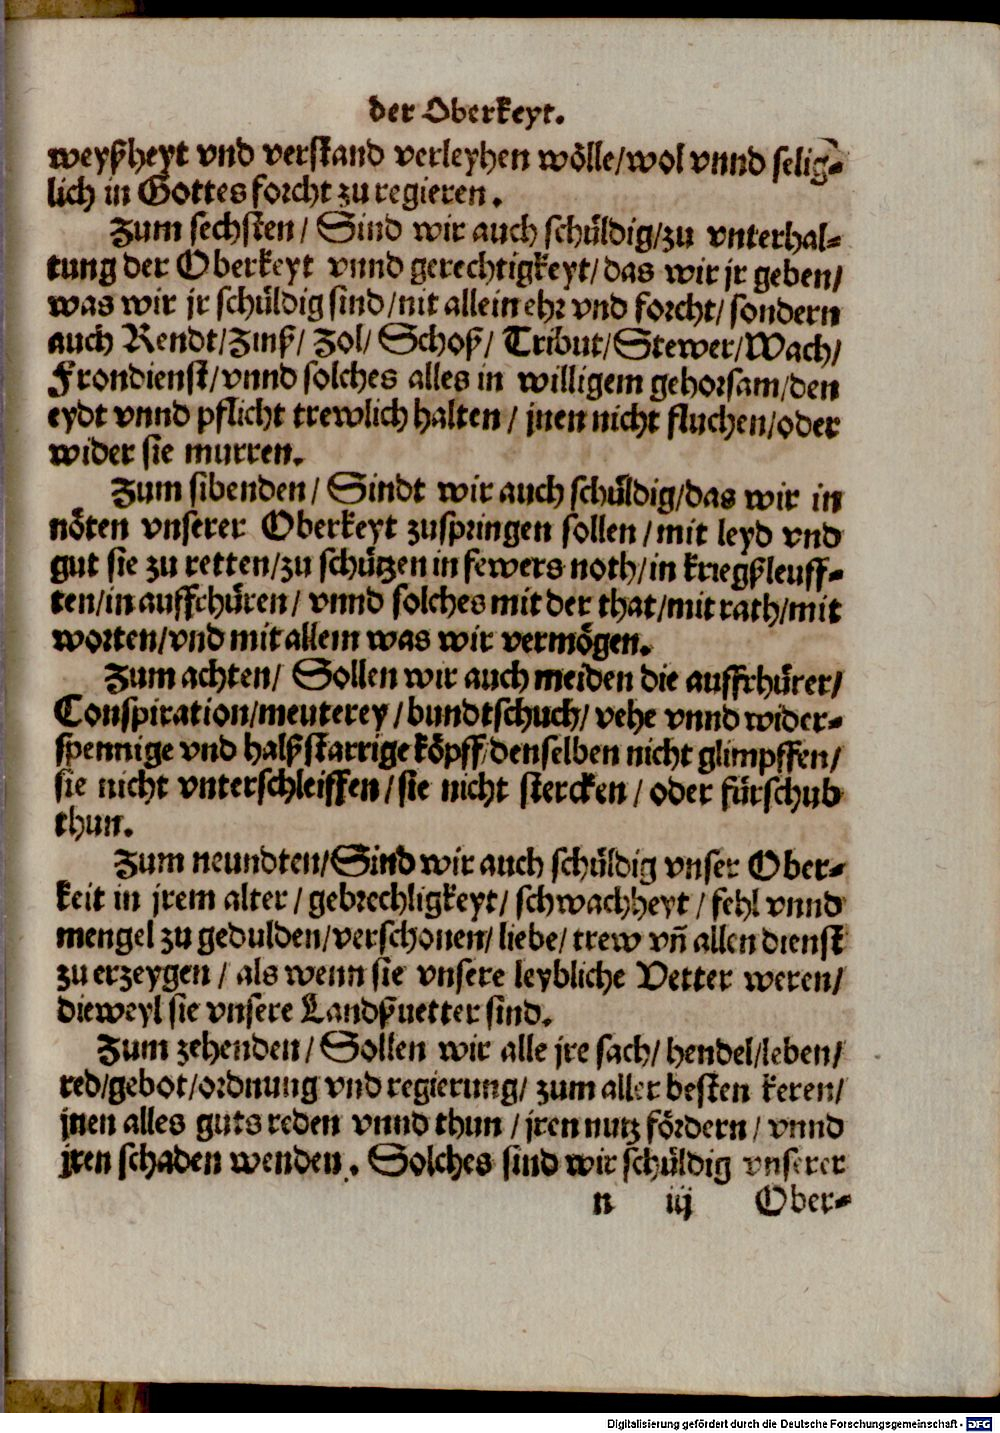 der Oberkeyt.
weyßheyt vnd verstand verleyhen wölle/wol vnnd selig-
lich in Gottes forcht zu regieren.
Zum sechsten/ Sind wir auch schüldig/zu vnterhal-
tung der Oberkeyt vnnd gerechtigkeyt/das wir jr geben/
was wir jr schüldig sind/nit allein ehr vnd forcht/sondern
auch Rendt/Zinß/ Zol/ Schoß/ Tribut/Stewer/Wach/
Frondienst/vnnd solches alles in willigem gehorsam/den
eydt vnnd pflicht trewlich halten/ jnen nicht fluchen/oder
wider sie murren.
Zum sibenden/ Sindt wir auch schüldig/das wir in
nöten vnserer Oberkeyt zuspringen sollen/mit leyd vnd
gut sie zu retten/zu schützen in fewers noth/in kriegßleuff-
ten/in auffrhüren/ vnnd solches mit der that/mit rath/mit
worten/vnd mit allem was wir vermögen.
Zum achten/ Sollen wir auch meiden die auffrhürer/
Conspiration/meuterey/bundtschuch/vehe vnnd wider-
spennige vnd halßstarrige köpff/denselben nicht glimpffen/
sie nicht vnterschleiffen/sie nicht stercken/ oder fürschub
thun.
Zum neundten/Sind wir auch schüldig vnser Ober-
keit in jrem alter/ gebrechligkeyt/ schwachheyt/ fehl vnnd
mengel zu gedulden/verschonen/liebe/trew vñ allen dienst
zu erzeygen/ als wenn sie vnsere leybliche Vetter weren/
dieweyl sie vnsere Landßuetter sind.
Zum zehenden/ Sollen wir alle jre sach/hendel/leben/
red/gebot/ordnung vnd regierung/ zum aller besten keren/
jnen alles guts reden vnnd thun/ jren nutz fördern/ vnnd
jren schaden wenden. Solches sind wir schüldig vnserer
n iij Ober-
Digitalisierung gefördert durch die Deutsche Forschungsgemeinschaft - DFG